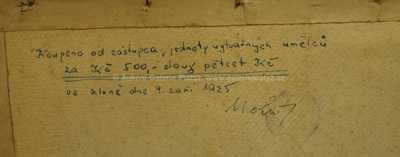 Koupeno od zástupce „jednoty výtvarných umělců
za Kč 500,- slovy pětset Kč
ve dne 9. září 1925